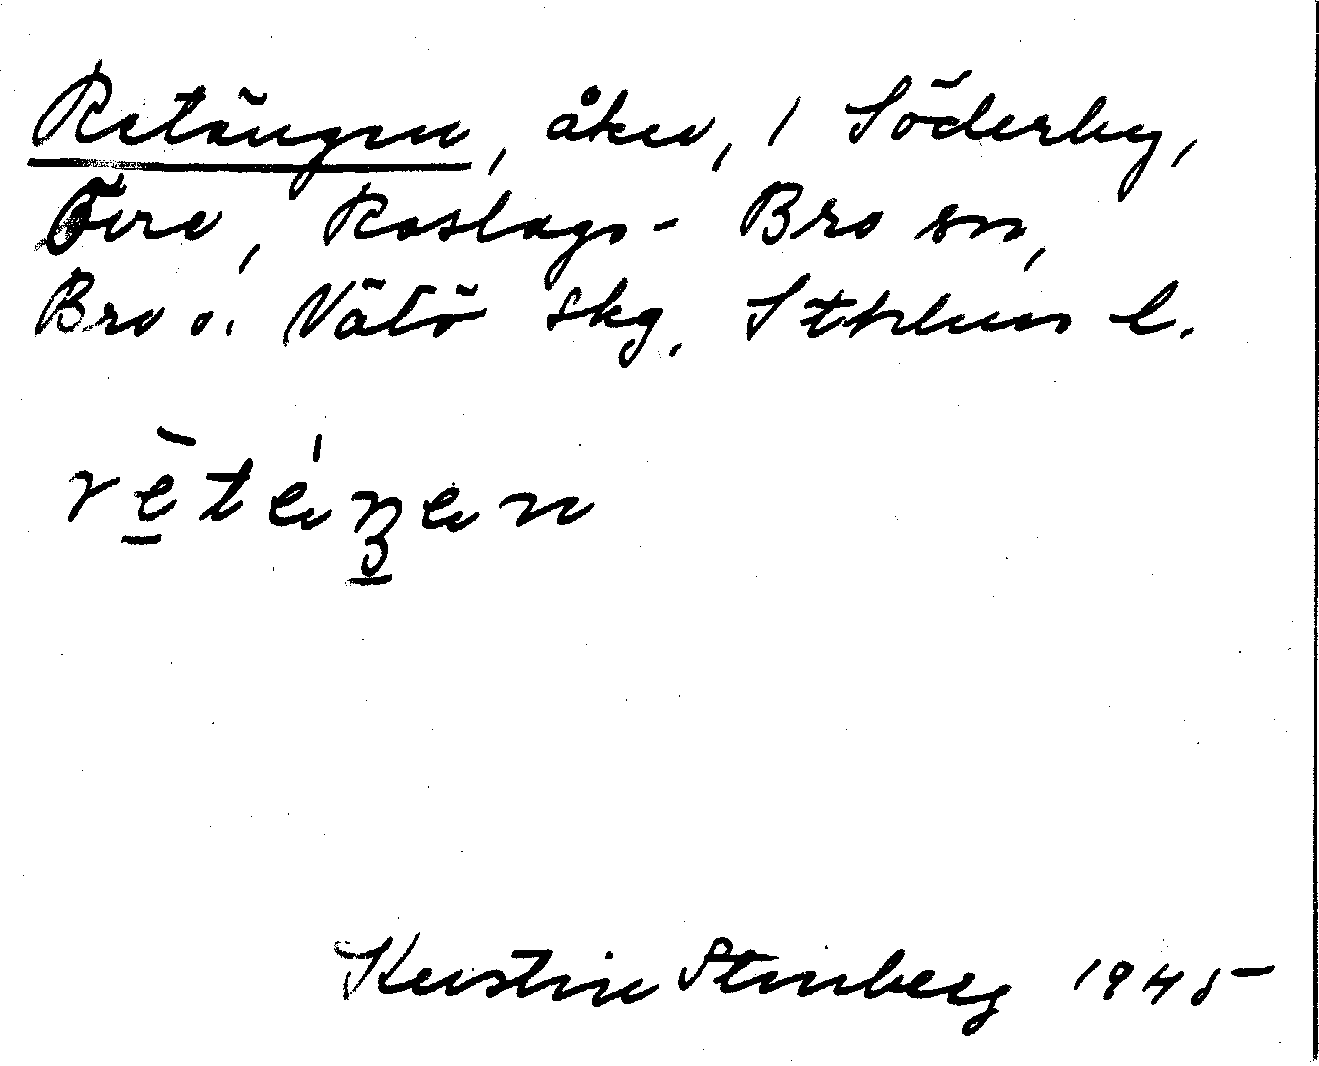 Retängen, åker, 1 Söderby,
Roslags-Bro sn,
Bro o. Vätö skg. Sthlms l.
rètéŋen
Kerstin Stenberg 1945